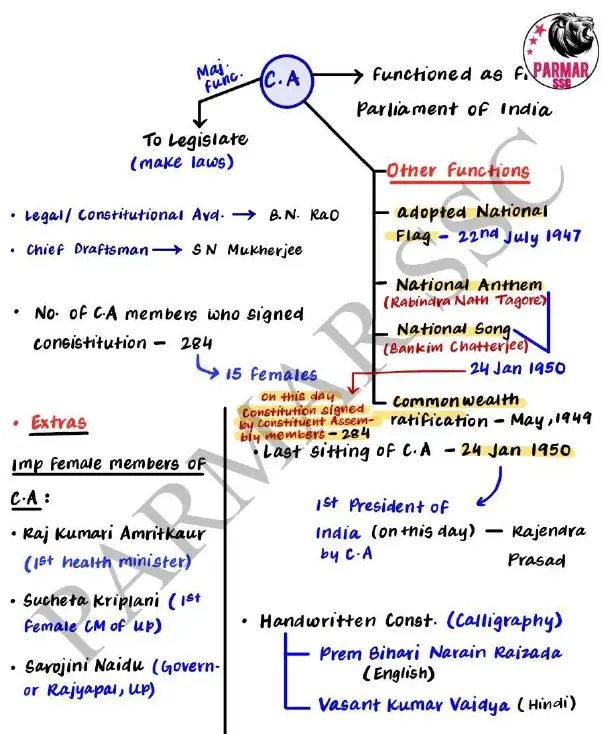 Maj. Func.
C.A
Functioned as
Parliament of India
PARMAR
SSG
To Legislate
(make laws)
Other Functions
• Legal/ Constitutional Avd. → B.N. RaO
• Chief Draftsman → S N Mukherjee
adopted National
Flag - 22nd July 1947
National Anthem
(Rabindra Nath Tagore)
National Song
(Bankim Chatterjee)
24 Jan 1950
• No. of C.A members who signed
consistitution - 284
15 Females
on this day
Constitution signed
by Constituent Assem-
bly members - 284
Common wealth
ratification - May, 1949
• Last sitting of C.A - 24 Jan 1950
1st President of
India (on this day) — Rajendra
by C.A Prasad
• Extras
Imp Female members of
C.A :
• Raj Kumari Amritkaur
(1st health minister)
• Sucheta Kriplani (1st
Female CM of UP)
• Sarojini Naidu (Govern-
or Rajyapal, UP)
• Handwritten Const. (Calligraphy)
Prem Bihari Narain Raizada
(English)
Vasant Kumar Vaidya (Hindi)
PARMAR SSC